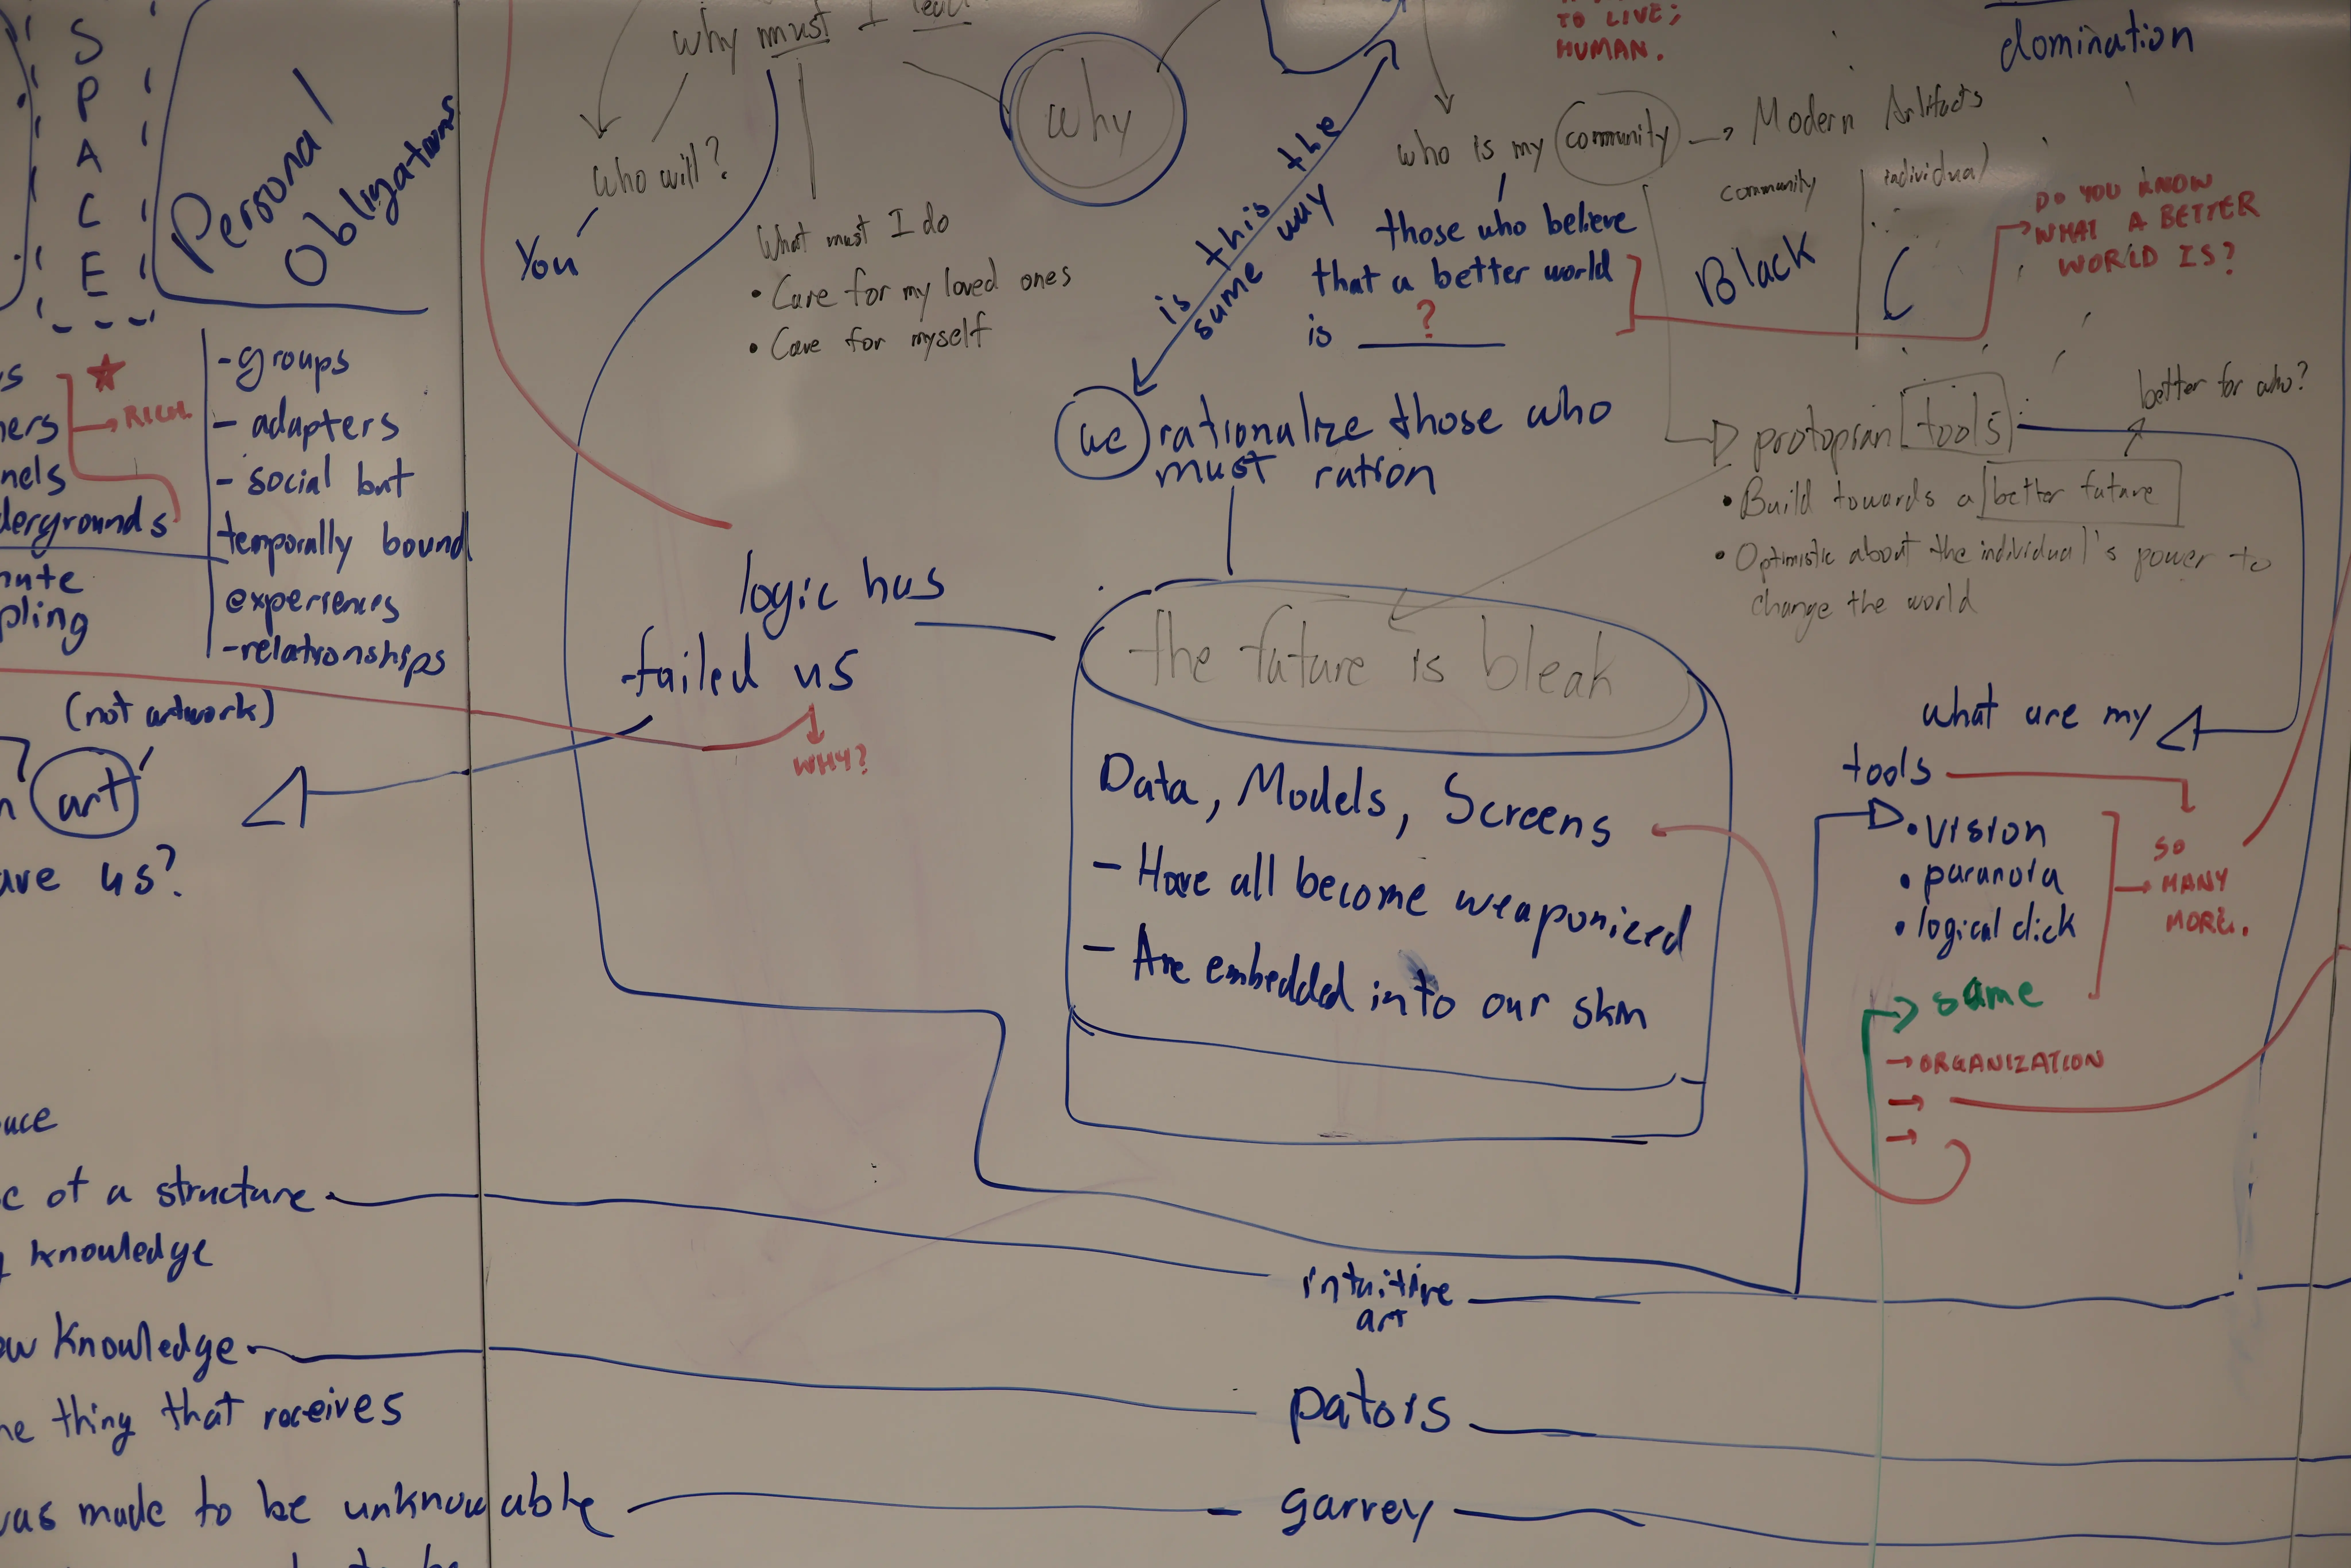 S
P
A
C
E
Personal
Obligations
why must I lead
why
TO LIVE;
HUMAN.
domination
who will?
You
What must I do
• Care for my loved ones
• Care for myself
is this the
same way
who is my community → Modern Artifacts
community
individual
Black
those who believe
that a better world
is ?
DO YOU KNOW
WHAT A BETTER
WORLD IS?
RICH
-groups
- adapters
- social but
temporally bound
experiences
-relationships
dergrounds
we rationalize those who
must ration
better for who?
protopian tools
• Build towards a better future
• Optimistic about the individual's power to
change the world
logic has
failed us
WHY?
(not artwork)
art
us?
the future is bleak
Data, Models, Screens
- Have all become weaponized
- Are embedded into our skin
what are my
tools
• vision
• paranoia
• logical dick
SO
MANY
MORE.
same
→ ORGANIZATION
→
→
of a structure
knowledge
intuitive
art
knowledge
thing that receives
pators
was made to be unknowable
garvey